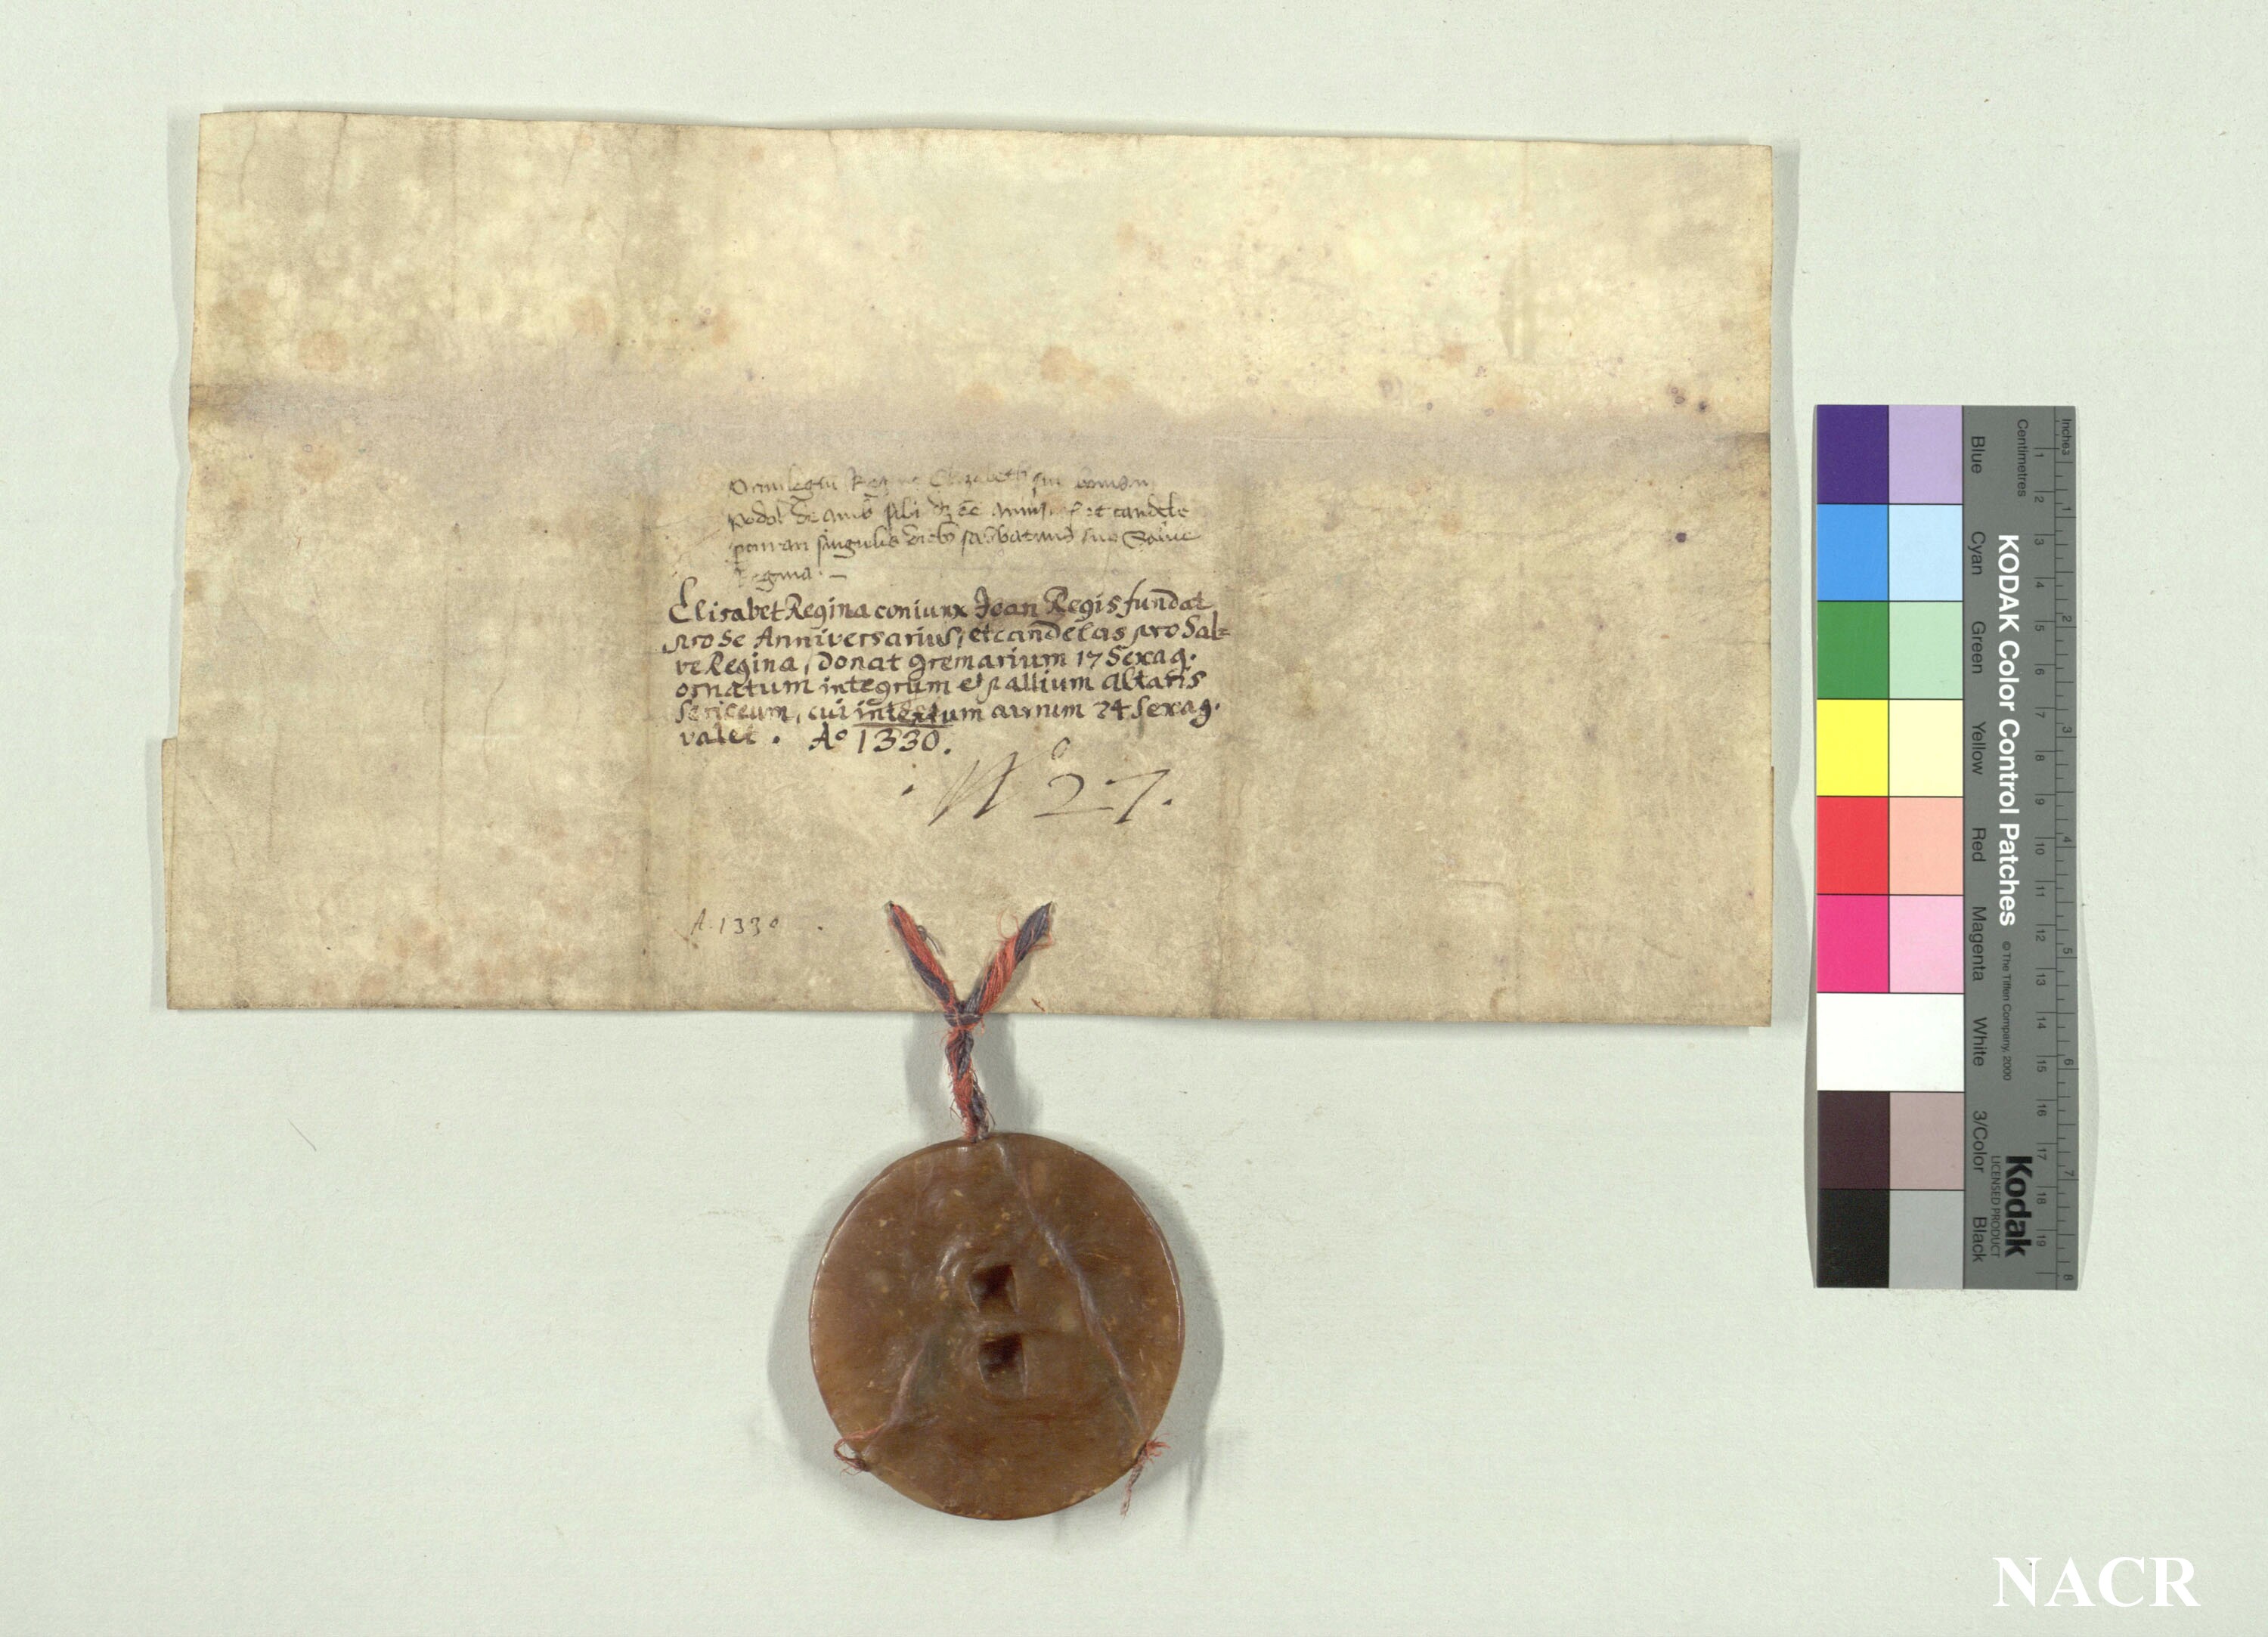 Privilegiu Regine Elizabeth
sibi et candele
singulis dieb sabbatinis sup Salve
Regina. —
Elisabet Regina coniunx Ioan Regis fundat
pro se Anniversarius, et candelas pro Sal=
ve Regina, Donat gremarium 17 Sexag.
ornatum integrum et pallium altaris
Sericeum, cui intextum aurum 24 Sexag.
valet. Aº 1330.
. Nº 27.
A. 1330 .
Inches
Centimetres
1 2 3 4 5 6 7 8 9 10 11 12 13 14 15 16 17 18 19
1 2 3 4 5 6 7 8
KODAK Color Control Patches © The Tiffen Company, 2000
Kodak
LICENSED PRODUCT
Blue
Cyan
Green
Yellow
Red
Magenta
White
3/Color
Black
NACR